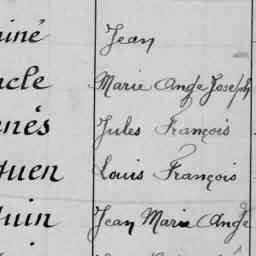 uiné Jean
acle Marie Ange Joseph
nnés Jules François
guen Louis François
quin Jean Marie Ange